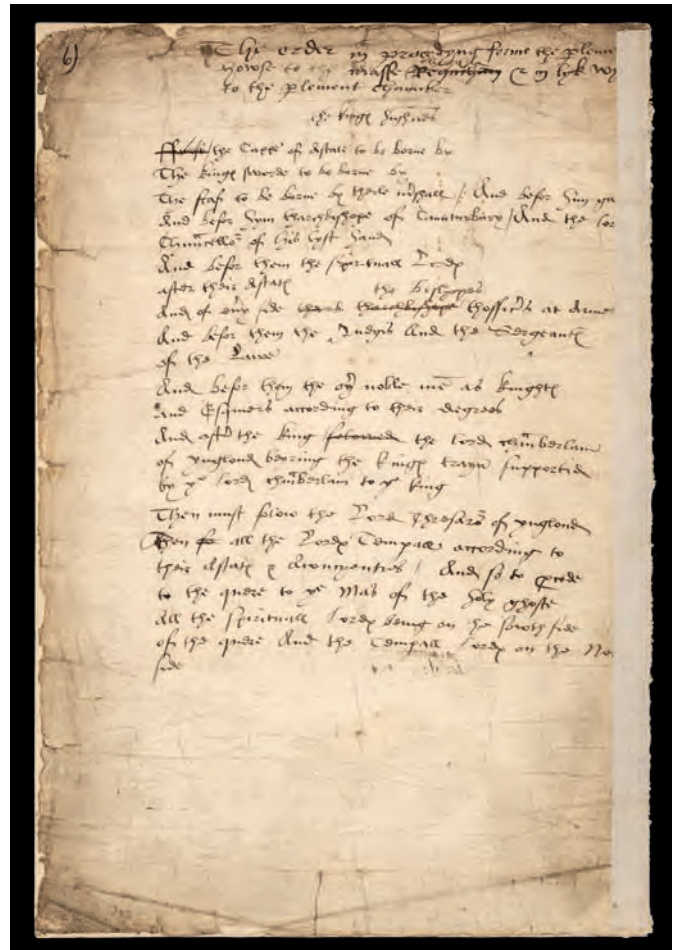 6)
The order in procedyng forme the pleme
howse to the masse Requiham & in lyk wy
to the plement chamber
the kingꝭ highnes
the Cappe of Astate to be borne by
The kingꝭ sworde to be borne by
The staf to be borne by therle mshall / And befor hym
And befor hym tharchbishope of Canturbury / And the lor
Chauncellor of his lyft hand
And befor them the spirituall Lordꝭ
after their Astatꝭ
the bishopes
And of evy side tharchbishope thofficrs at Arme
And befor them the Jugis And the Sergeantꝭ
of the Lawe
And befor them the oyr noble me as knightꝭ
And Esquiers according to their degrees
And aftr the king folowed the lord chamberlain
of ynglond beryng the kingꝭ trayn supportid
by ye lord chamberlain to ye king
Then must folow the Lord Thresaror of ynglond
Then all the Lordꝭ Tempall according to
their Astatꝭ & Auncyenties / And so to pcede
to the quere to ye Mas of the holy ghoste
All the spirituall Lordꝭ being on the sowth side
of the quere And the Tempall Lordꝭ on the No
side